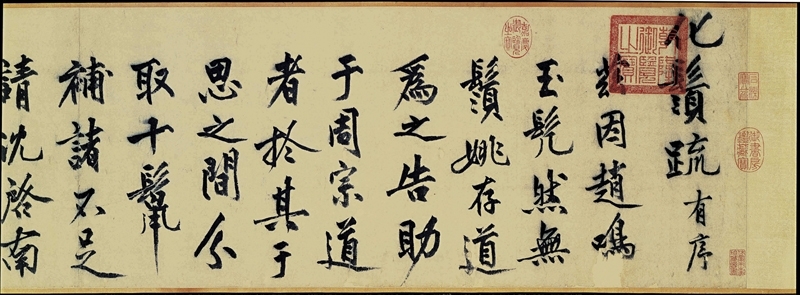 化鬚疏有序
茲因趙鳴
玉髡然無
鬚姚存道
爲之告助
于周宗道
者於其于
思之間分
取十鬣
補諸不足
請沈啓南